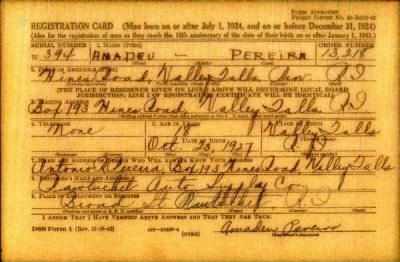 FORM APPROVED
REGISTRATION CARD (Men born on or after July 1, 1924, and on or before December 31, 1924)
(Also for the registration of men as they reach the 18th anniversary of the date of their birth on or after January 1, 1943.)
SERIAL NUMBER 1. NAME (Print) ORDER NUMBER
W 394 AMADEU - PEREIRA 13,218
2. PLACE OF RESIDENCE (Print)
Hines Road, Valley Falls Prov R I
(THE PLACE OF RESIDENCE GIVEN ON LINE 2 ABOVE WILL DETERMINE LOCAL BOARD
JURISDICTION; LINE 2 OF REGISTRATION CERTIFICATE WILL BE IDENTICAL)
3. MAILING ADDRESS
Box 193 Hines Road, Valley Falls R I
4. TELEPHONE 5. AGE IN YEARS 6. PLACE OF BIRTH
None 18 Valley Falls
DATE OF BIRTH
Oct. 23, 1927 R I
7. NAME AND ADDRESS OF PERSON WHO WILL ALWAYS KNOW YOUR ADDRESS
Antonio Pereira, Box 193 Hines Road, Valley Falls
8. EMPLOYER'S NAME AND ADDRESS
Pawtucket Auto Supply Co.
9. PLACE OF EMPLOYMENT OR BUSINESS
Broad St Pawtucket R I
I AFFIRM THAT I HAVE VERIFIED ABOVE ANSWERS AND THAT THEY ARE TRUE.
DSS Form 1 Amadeu Pereira